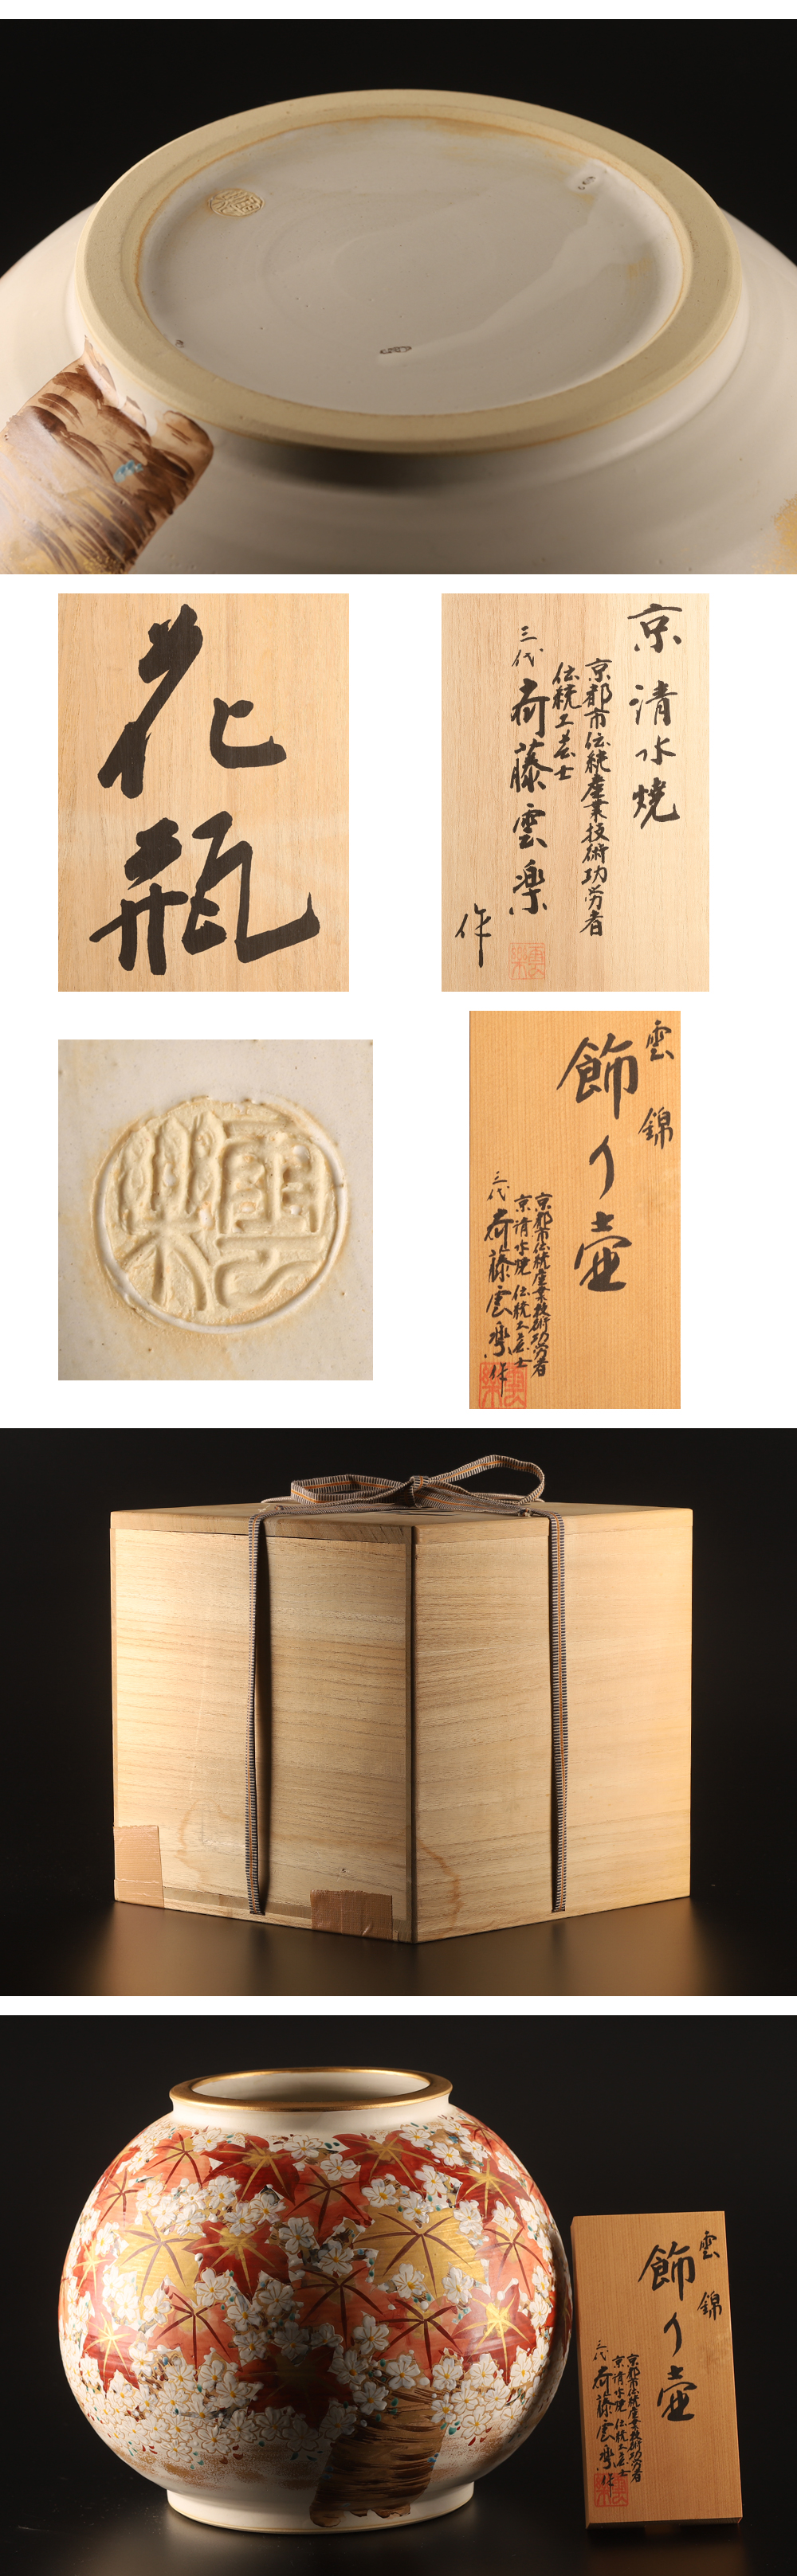 雲楽
花瓶
京 清水焼
京都市伝統産業技術功労者
伝統工芸士
三代 荷藤雲楽
作
雲楽
雲楽
雲錦
飾り壷
京都市伝統産業技術功労者
京清水焼 伝統工芸士
三代 荷藤雲楽作
雲楽
雲錦
飾り壷
京都市伝統産業技術功労者
京清水焼 伝統工芸士
三代 荷藤雲楽作
雲楽